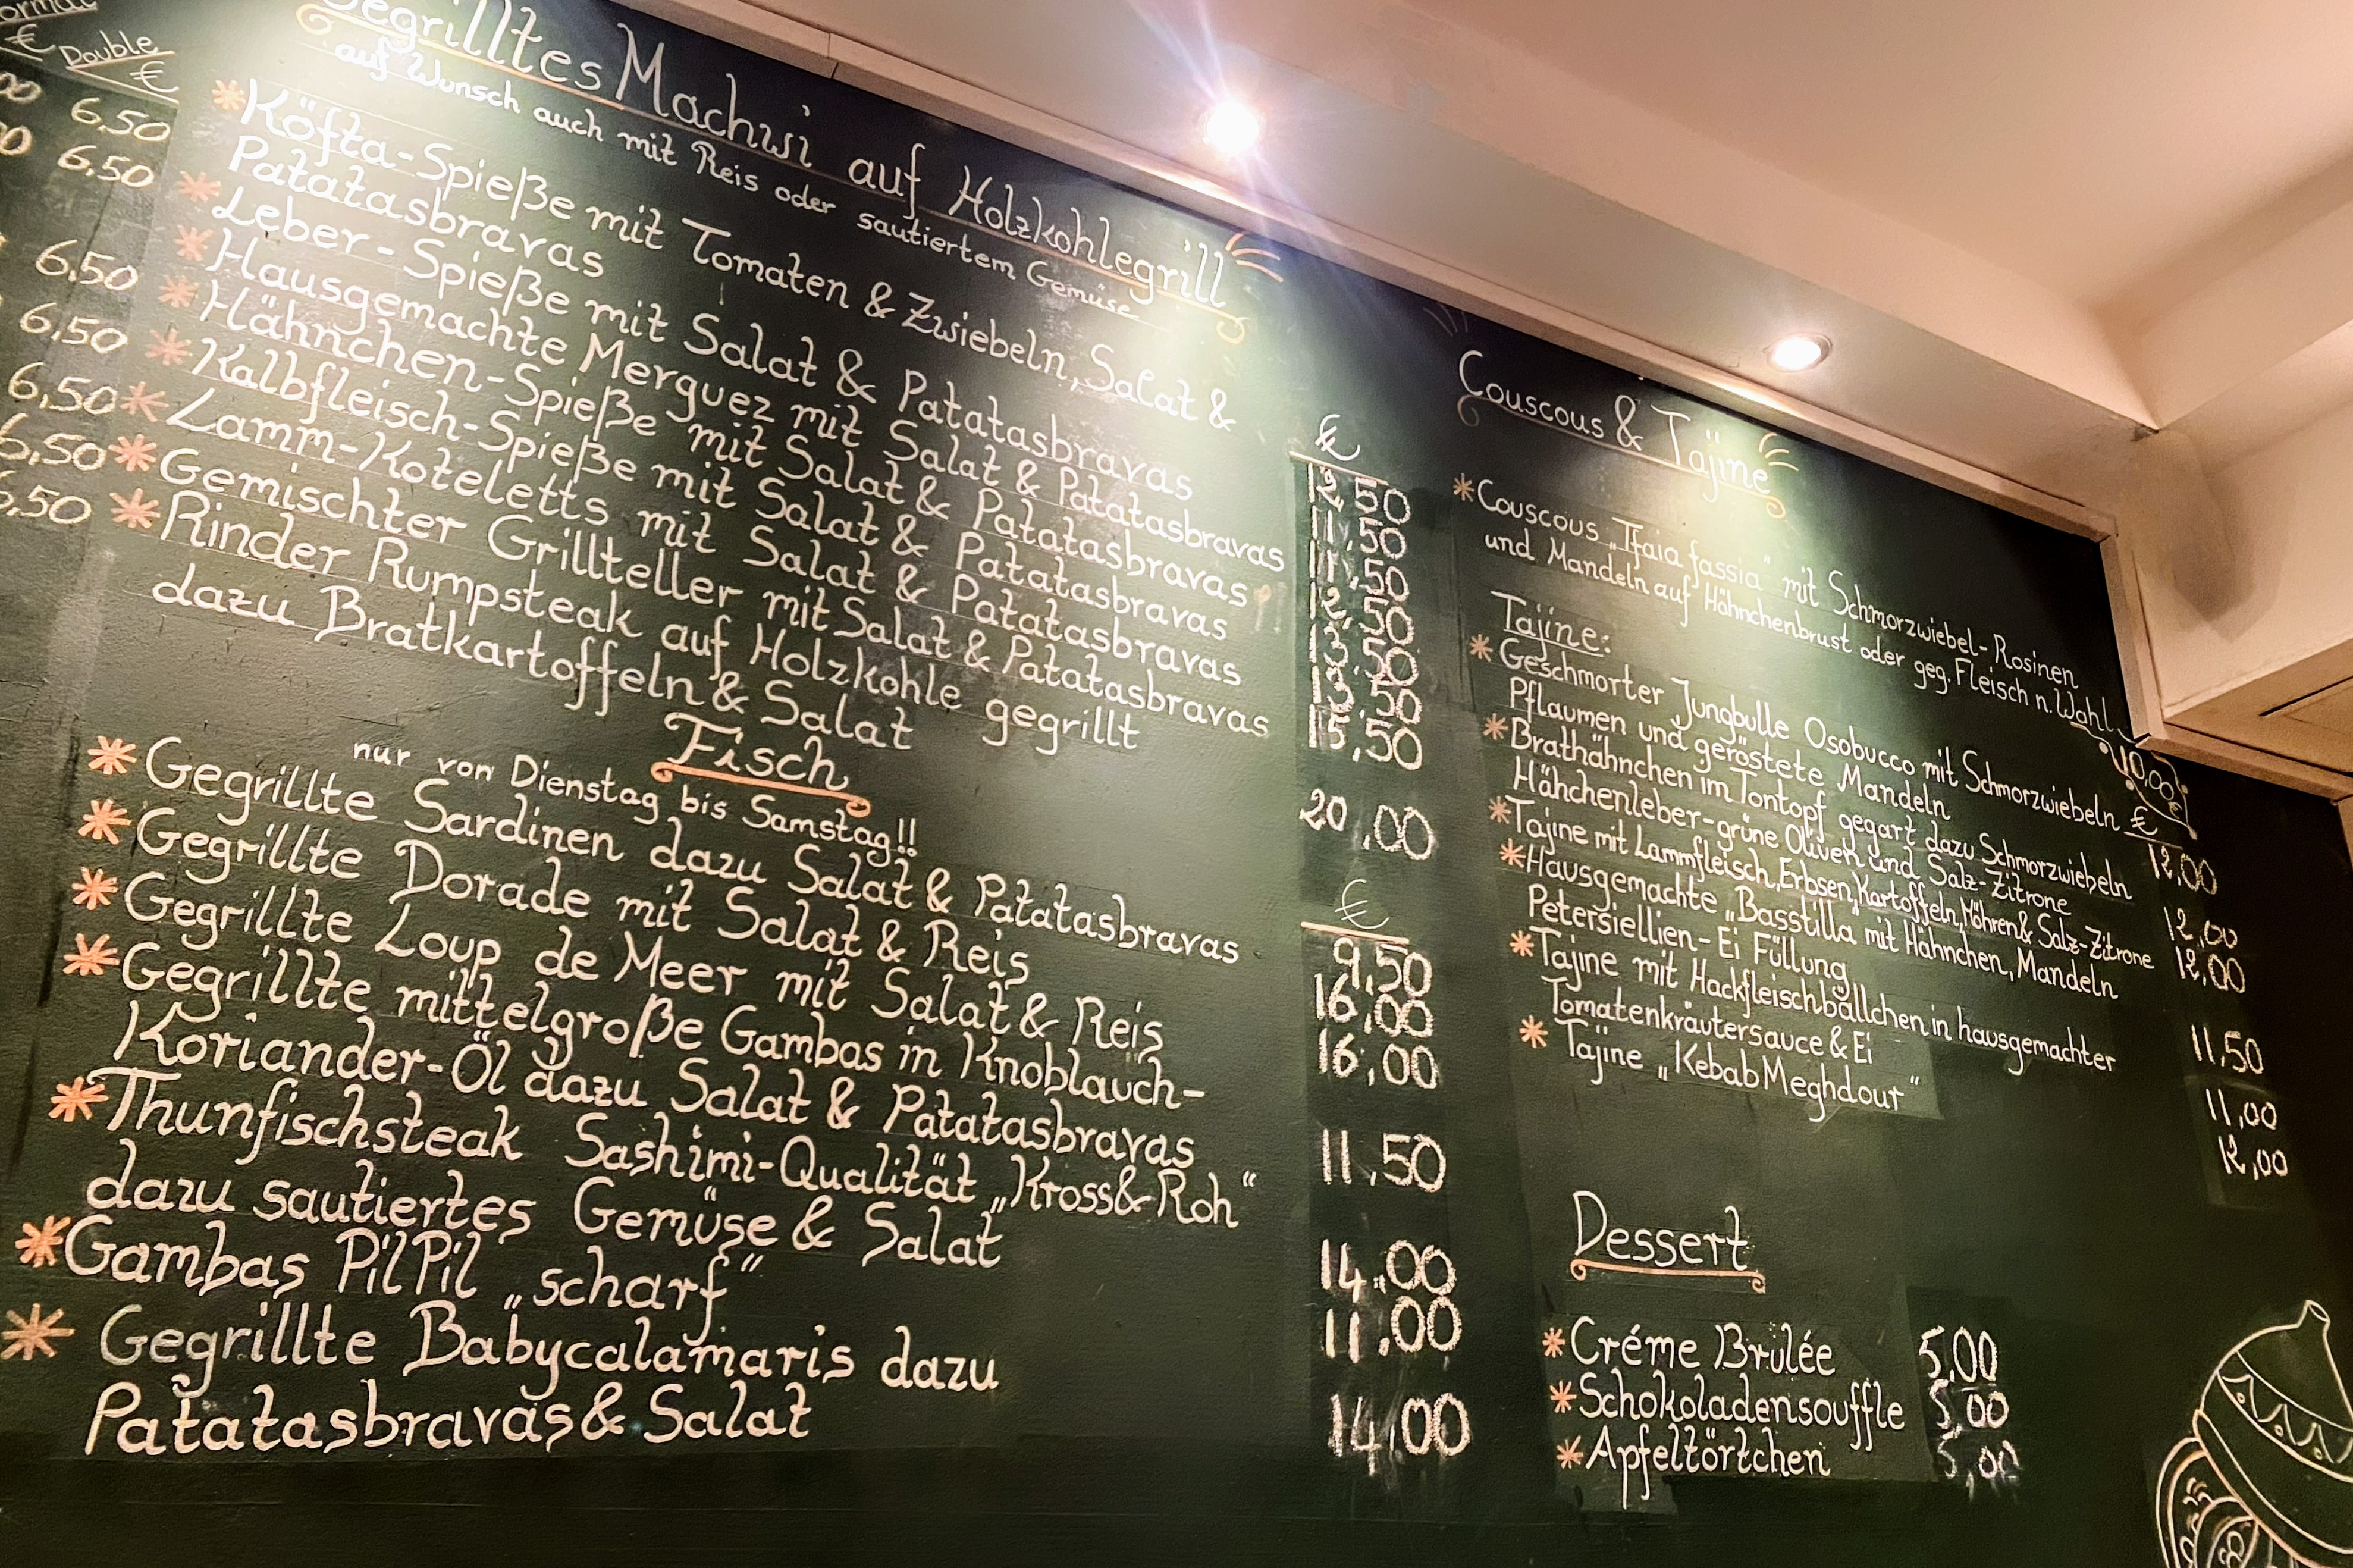 Double
€
€
6,50
6,50
6,50
6,50
6,50
6,50
6,50
Gegrilltes Machwi auf Holzkohlegrill
auf Wunsch auch mit Reis oder sautiertem Gemüse
*Köfta-Spieße mit Tomaten & Zwiebeln, Salat &
Patatasbravas
*Leber-Spieße mit Salat & Patatasbravas
*Hausgemachte Merguez mit Salat & Patatasbravas
*Hähnchen-Spieße mit Salat & Patatasbravas
*Kalbfleisch-Spieße mit Salat & Patatasbravas
*Lamm-Koteletts mit Salat & Patatasbravas
*Gemischter Grillteller mit Salat & Patatasbravas
*Rinder Rumpsteak auf Holzkohle gegrillt
dazu Bratkartoffeln & Salat
€
12,50
11,50
11,50
12,50
13,50
13,50
15,50
20,00
Fisch
nur von Dienstag bis Samstag!!
*Gegrillte Sardinen dazu Salat & Patatasbravas
*Gegrillte Dorade mit Salat & Reis
*Gegrillte Loup de Meer mit Salat & Reis
*Gegrillte mittelgroße Gambas in Knoblauch-
Koriander-Öl dazu Salat & Patatasbravas
*Thunfischsteak Sashimi-Qualität „Kross& Roh“
dazu sautiertes Gemüse & Salat
*Gambas PilPil „scharf“
*Gegrillte Babycalamaris dazu
Patatasbravas & Salat
€
9,50
16,00
16,00
11,50
14,00
11,00
14,00
Couscous & Tajine
*Couscous „Tfaia fassia“ mit Schmorzwiebel-Rosinen
und Mandeln auf Hähnchenbrust oder geg. Fleisch n. Wahl
10,00€
Tajine:
*Geschmorter Jungbulle Osobucco mit Schmorzwiebeln
Pflaumen und geröstete Mandeln
*Brathähnchen im Tontopf gegart dazu Schmorzwiebeln
Hähchenleber-grüne Oliven und Salz-Zitrone
*Tajine mit Lammfleisch, Erbsen, Kartoffeln, Möhren & Salz-Zitrone
*Hausgemachte „Basstilla“ mit Hähnchen, Mandeln
Petersiellien-Ei Füllung
*Tajine mit Hackfleischbällchen in hausgemachter
Tomatenkräutersauce & Ei
*Tajine „Kebab Meghdour“
€
12,00
12,00
12,00
11,50
11,00
12,00
Dessert
*Créme Brulée 5,00
*Schokoladensouffle 5,00
*Apfeltörtchen 5,00